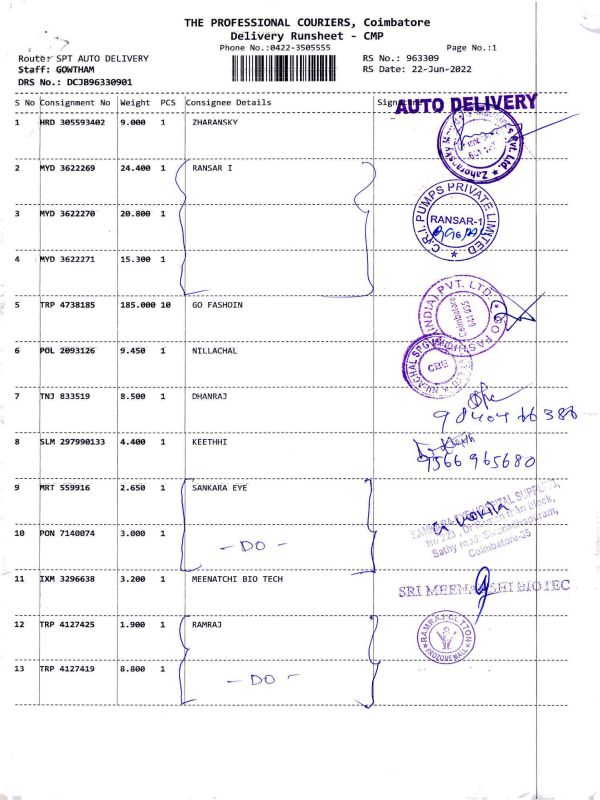 THE PROFESSIONAL COURIERS, Coimbatore
Delivery Runsheet - CMP
Phone No.:0422-3505555 Page No.:1
Route: SPT AUTO DELIVERY RS No.: 963309
Staff: GOWTHAM RS Date: 22-Jun-2022
DRS No.: DCJB96330901
S No Consignment No Weight PCS Consignee Details Signature
AUTO DELIVERY
1 HRD 305593402 9.000 1 ZHARANSKY
Pvt. Ltd. * Zahoransky
2 MYD 3622269 24.400 1 RANSAR I
3 MYD 3622270 20.800 1
C.R.I. PUMPS PRIVATE LIMITED
RANSAR-1
4 MYD 3622271 15.300 1
5 TRP 4738185 185.000 10 GO FASHOIN
GO FASHION (INDIA) PVT. LTD.
Coimbatore
6 POL 2093126 9.450 1 NILLACHAL
CBE
7 TNJ 833519 8.500 1 DHANRAJ
8 SLM 297990133 4.400 1 KEETHHI
9566965680
9 MRT 559916 2.650 1 SANKARA EYE
SANKARA EYE HOSPITAL SUPPLIES,
Block,
Sathy road, Sivanandhapuram,
Coimbatore-35
10 PON 7140074 3.000 1
- DO -
11 IXM 3296638 3.200 1 MEENATCHI BIO TECH
SRI MEENAKSHI BIOTEC
12 TRP 4127425 1.900 1 RAMRAJ
RAMRAJ COTTON
PROZONE MALL
13 TRP 4127419 8.800 1
- DO -